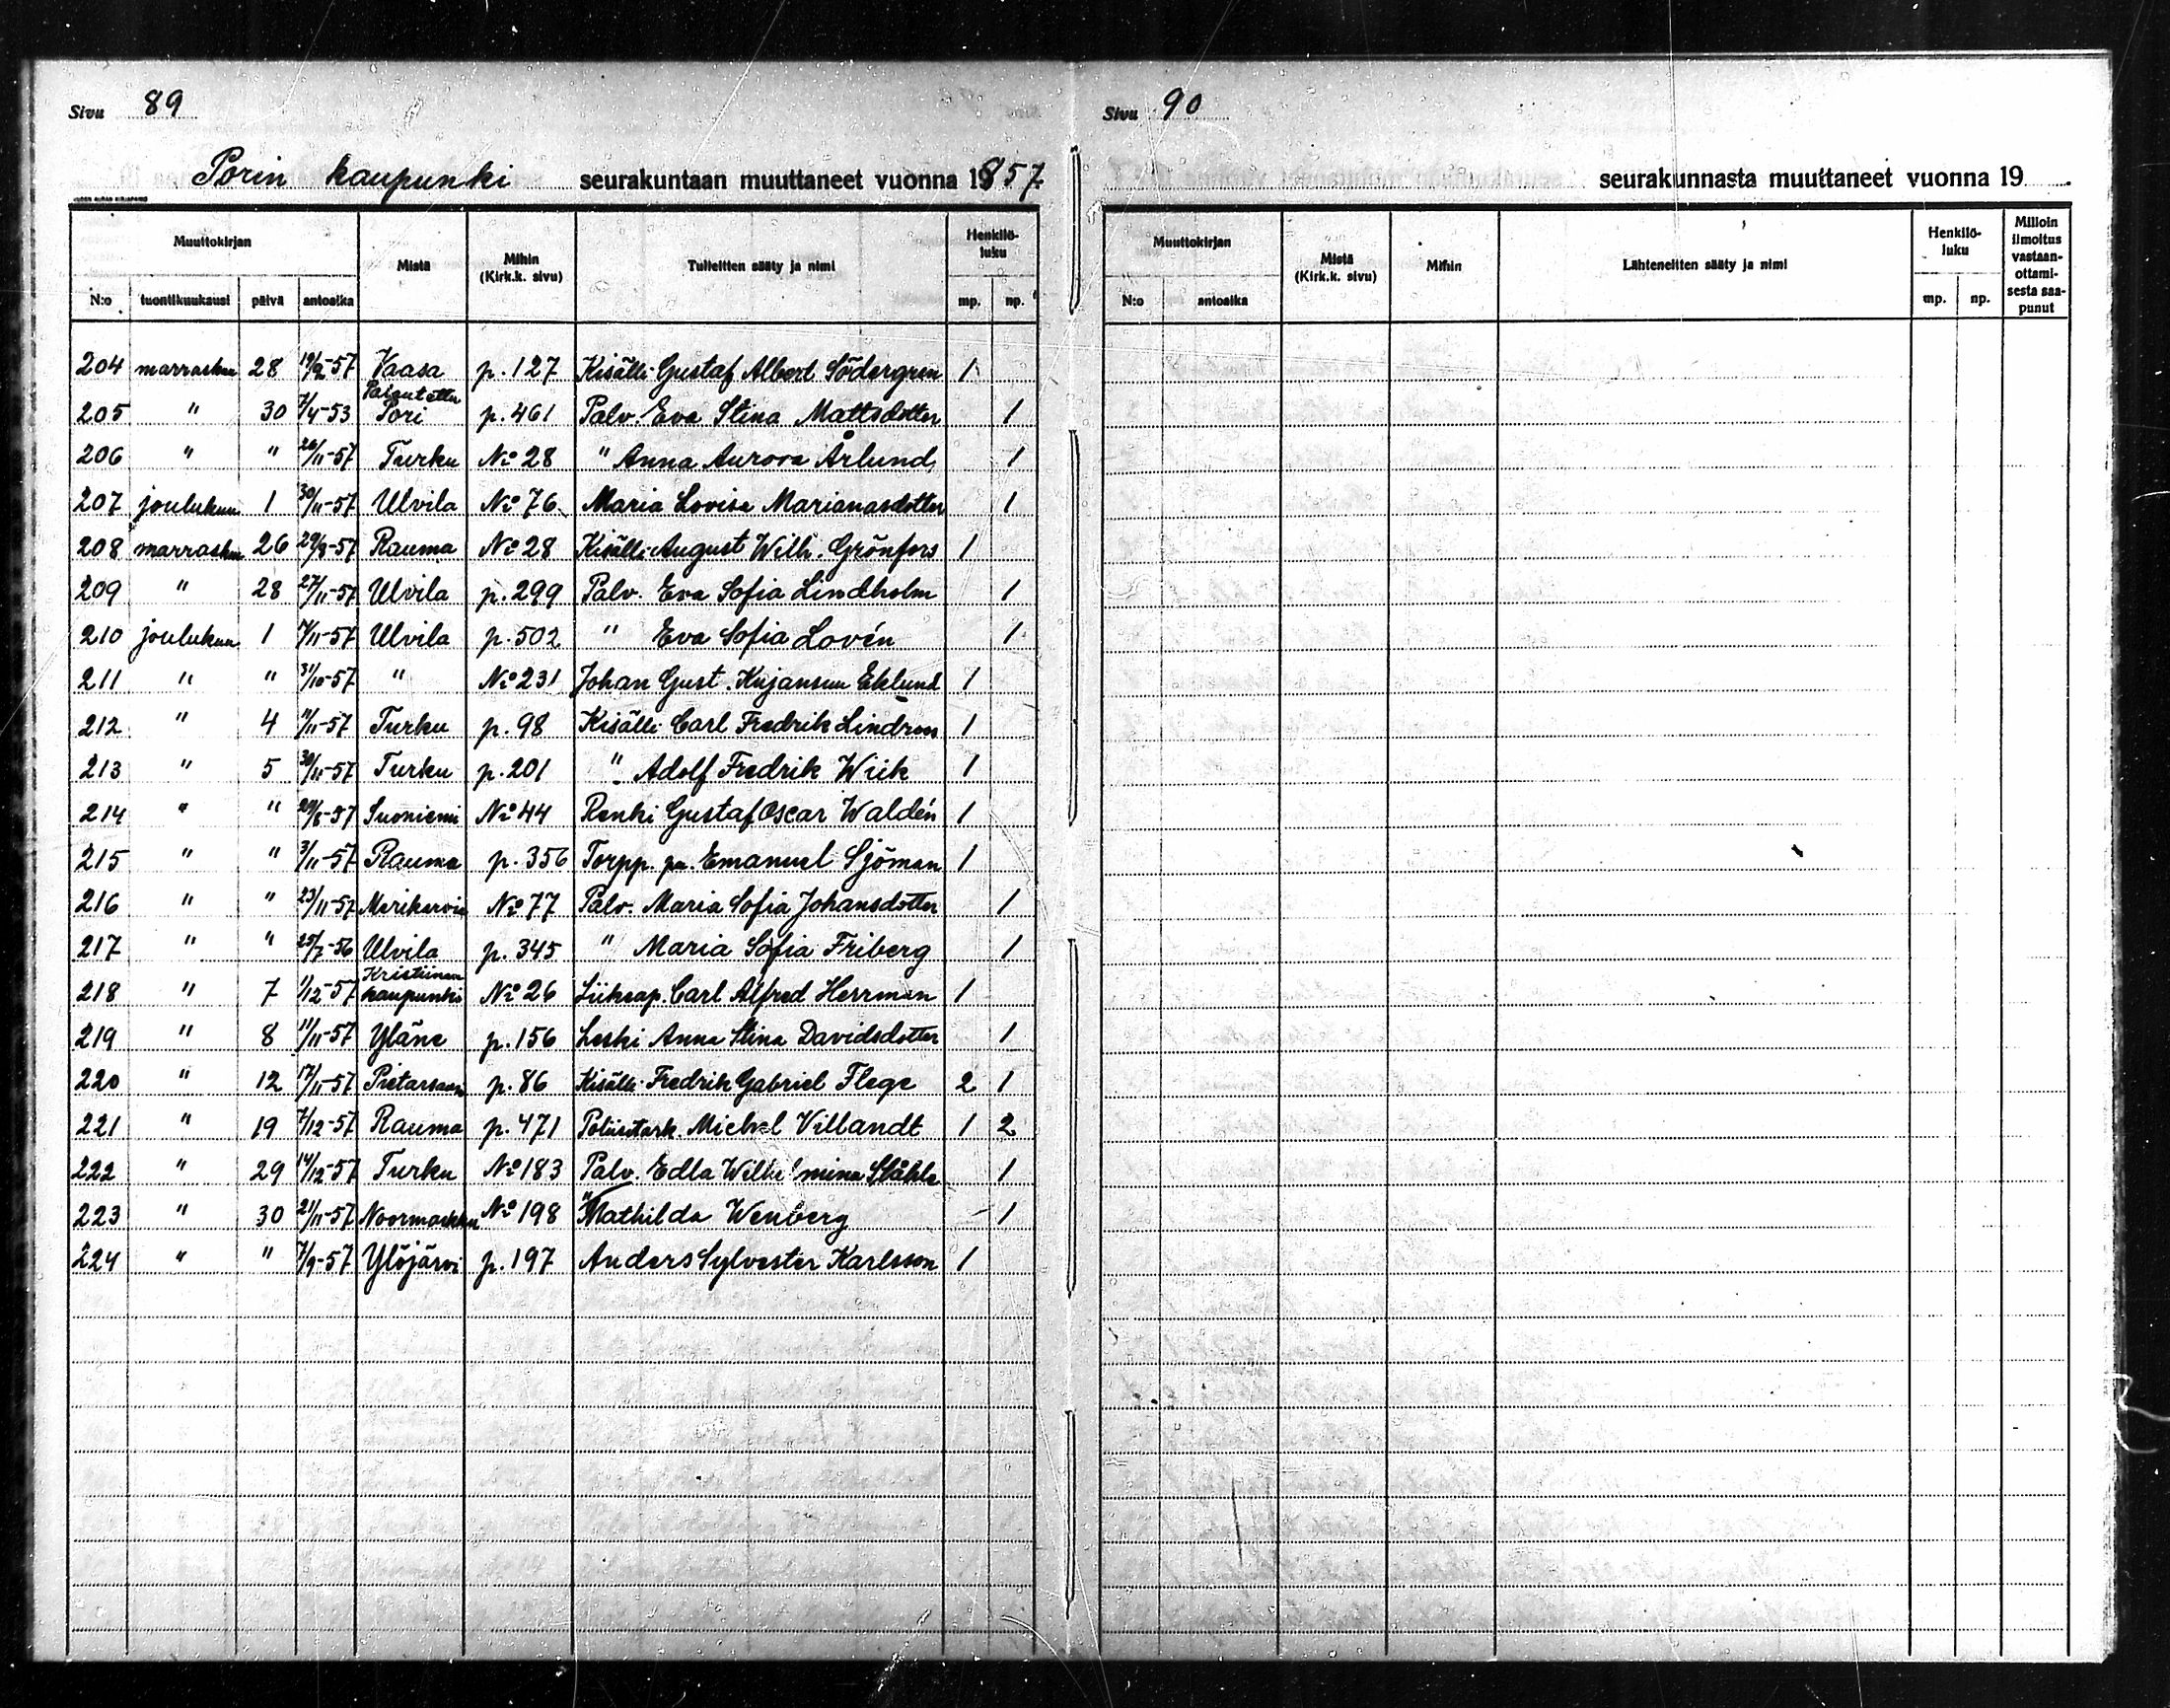 Sivu 89
Porin kaupunki seurakuntaan muuttaneet vuonna 1857
Muuttokirjan Mistä Mihin (Kirk.k. sivu) Tulleitten sääty ja nimi Henkilö-luku
N:o tuontikuukausi päivä antoaika mp. np.
204 marraskuu 28 19/9-57 Vaasa p. 127 Kisälli Gustaf Albert Södergren 1
205 " 30 7/4-53 Palautettu Pori p. 461 Palv. Eva Stina Mattsdotter 1
206 " " 26/11-57 Turku No 28 " Anna Aurora Årlund 1
207 joulukuu 1 30/11-57 Ulvila No 76 Maria Lovisa Marianasdotter 1
208 marraskuu 26 29/9-57 Rauma No 28 Kisälli August Wilh. Grönfors 1
209 " 28 27/11-57 Ulvila p. 299 Palv. Eva Sofia Lindholm 1
210 joulukuu 1 /11-57 Ulvila p. 502 " Eva Sofia Lovén 1
211 " " 31/10-57 " No 231 Johan Gust. Kujansuu Eklund 1
212 " 4 /11-57 Turku p. 98 Kisälli Carl Fredrik 1
213 " 5 30/11-57 Turku p. 201 " Adolf Fredrik Wiik 1
214 " " -57 Suoniemi No 44 Renki Gustaf Oscar Waldén 1
215 " " 3/11-57 Rauma p. 356 Torpp. Emanuel Sjöman 1
216 " " 23/11-57 Merikarvia No 77 Palv. Maria Sofia Johansdotter 1
217 " " 25/7-56 Ulvila p. 345 " Maria Sofia Friberg 1
218 " 7 1/12-57 Kristiinan kaupunki No 26 Liikeap. Carl Alfred Herrman 1
219 " 8 11/11-57 Yläne p. 156 Leski Anna Stina Davidsdotter 1
220 " 12 17/11-57 Pietarsaari p. 86 Kisälli Fredrik Gabriel Flege 2 1
221 " 19 7/12-57 Rauma p. 471 Poliisitark. Michel Villandt 1 2
222 " 29 14/12-57 Turku No 183 Palv. Edla Wilhelmina Ståhle 1
223 " 30 21/11-57 Noormarkku No 198 " Mathilda Wenberg 1
224 " " 7/9-57 Ylöjärvi p. 197 Anders Sylvester Karlsson 1
Sivu 90
seurakunnasta muuttaneet vuonna 19
Muuttokirjan Mistä (Kirk.k. sivu) Mihin Lähteneitten sääty ja nimi Henkilö-luku Milloin ilmoitus vastaan-ottami-sesta saa-punut
N:o antoaika mp. np.